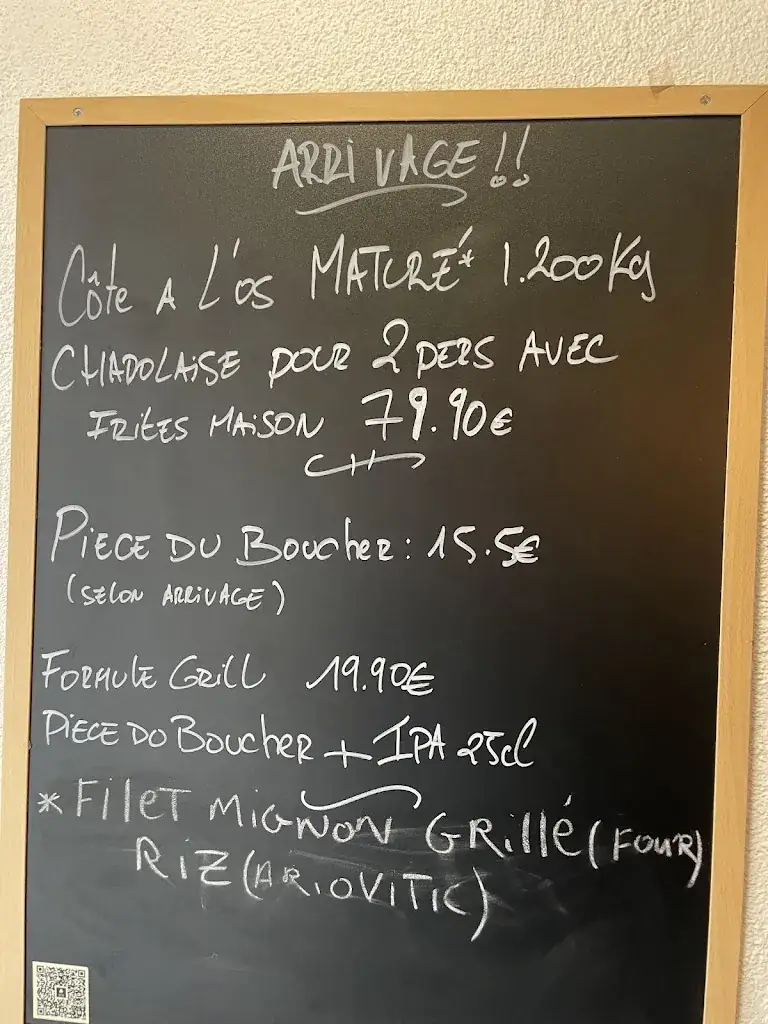 ARRIVAGE!!
Côte A L'OS MATURÉ* 1.200Kg
CHAROLAISE POUR 2 PERS AVEC
FRITES MAISON 79.90€
PIECE DU Boucher: 15.5€
(SELON ARRIVAGE)
FORMULE GRILL 19.90€
PIECE DO BOUCHER + IPA 25cl
* FILET MIGNON GRILLÉ (FOUR)
RIZ (ARIOVITIC)